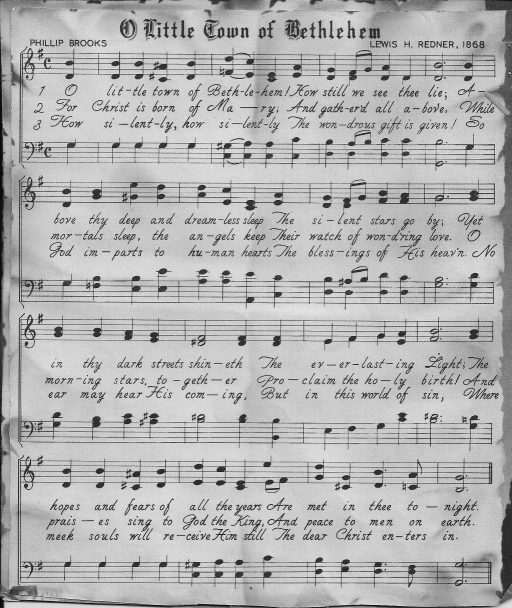 O Little Town of Bethlehem
PHILLIP BROOKS
LEWIS H. REDNER, 1868
1 O lit-tle town of Beth-le-hem! How still we see thee lie; A-
2 For Christ is born of Ma-ry; And gath-er'd all a-bove, While
3 How si-lent-ly, how si-lent-ly The won-drous gift is given! So
bove thy deep and dream-less sleep The si-lent stars go by; Yet
mor-tals sleep, the an-gels keep Their watch of won-d'ring love. O
God im-parts to hu-man hearts The bless-ings of His heav'n. No
in thy dark streets shin-eth The ev-er-last-ing Light; The
morn-ing stars, to-geth-er Pro-claim the ho-ly birth! And
ear may hear His com-ing, But in this world of sin, Where
hopes and fears of all the years Are met in thee to-night.
prais-es sing to God the King, And peace to men on earth.
meek souls will re-ceive Him still The dear Christ en-ters in.